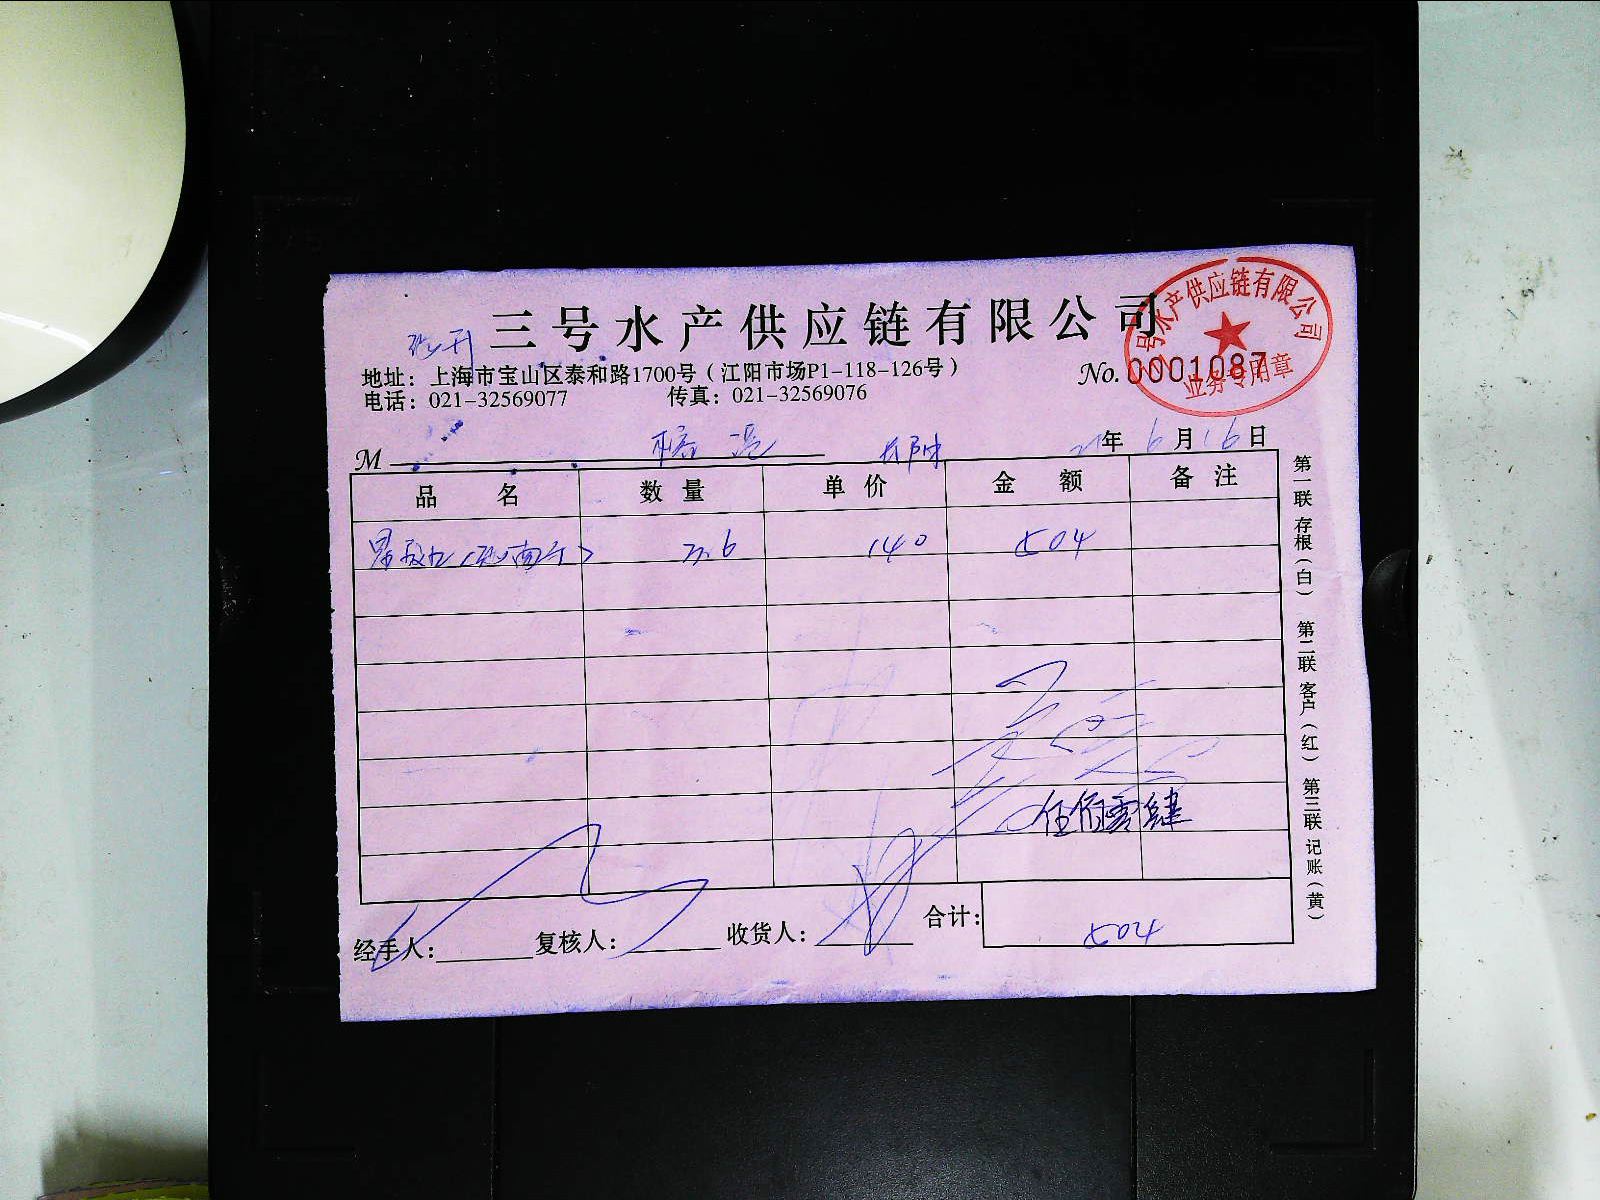 三号水产供应链有限公司
地址：上海市宝山区泰和路1700号（江阳市场P1-118-126号）
电话：021-32569077 传真：021-32569076
No.0001087
三号水产供应链有限公司
业务专用章
M 榕港 21年6月16日
品名 数量 单价 金额 备注
3.6 140 504
伍佰零肆
经手人： 复核人： 收货人： 合计：504
第一联 存根（白） 第二联 客户（红） 第三联 记账（黄）